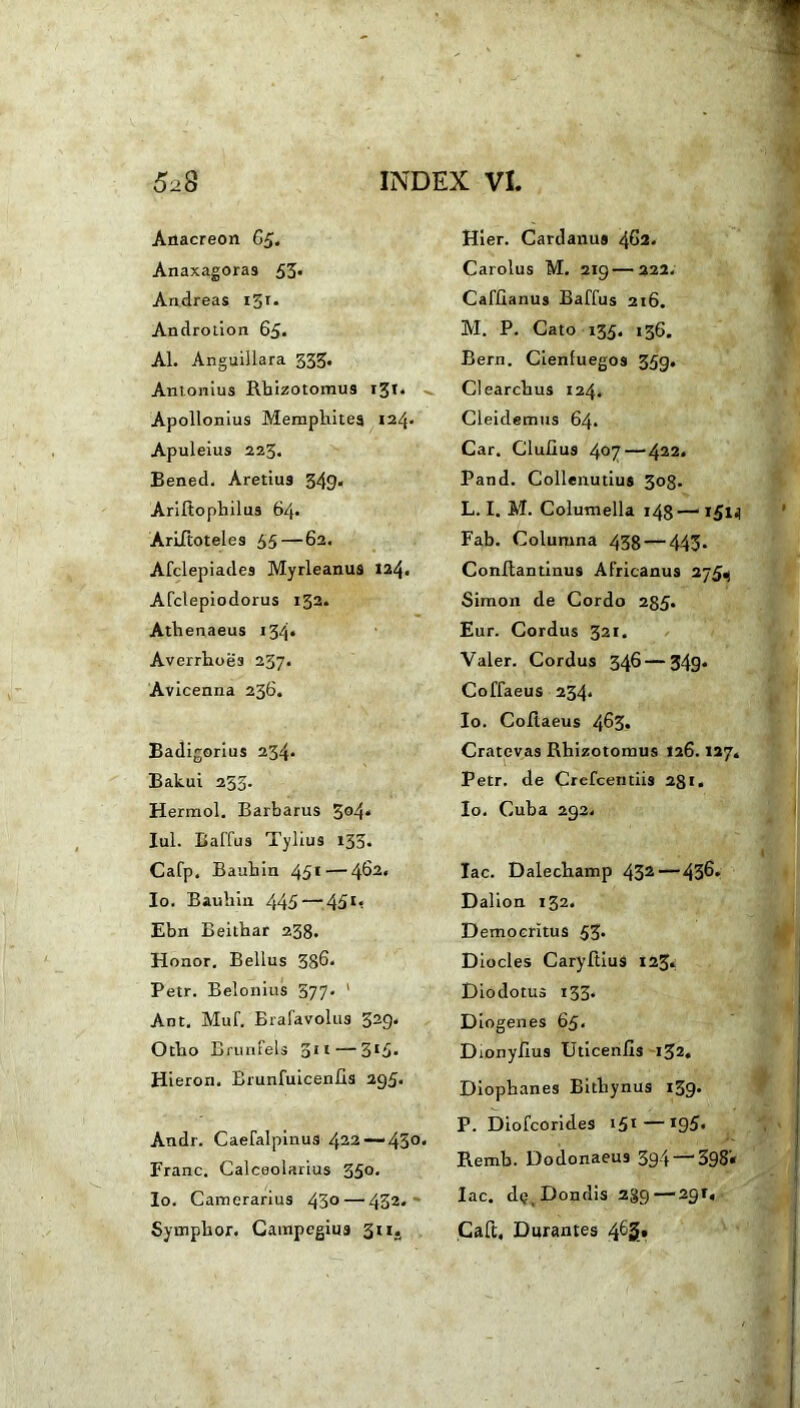 528 INDEX VI.
Anacreon 65.
Anaxagoras 53.
Andreas 131.
Androtion 65.
Al. Anguillara 333.
Antonius Rhizotomus 131.
Apollonius Memphites 124.
Apuleius 223.
Bened. Aretius 349.
Ariſtophilus 64.
Ariſtoteles 55—62.
Aſclepiades Myrleanus 124.
Aſclepiodorus 132.
Athenaeus 134.
Averrhoës 237.
Avicenna 236.
Badigorius 234.
Bakui 233.
Hermol. Barbarus 304.
Iul. Baſſus Tylius 133.
Caſp. Bauhin 451—462.
Io. Bauhin 445—451.
Ebn Beithar 238.
Honor. Bellus 386.
Petr. Belonius 377.
Ant. Muſ. Braſavolus 329.
Otho Brunfels 311—315.
Hieron. Brunſuicenſis 295.
Andr. Caeſalpinus 422—430.
Franc. Calceolarius 350.
Io. Camerarius 430—432.
Symphor. Campegius 311.
Hier. Cardanus 462.
Carolus M. 219—222.
Caſſianus Baſſus 216.
M. P. Cato 135. 136.
Bern. Cienfuegos 359.
Clearchus 124.
Cleidemus 64.
Car. Cluſius 407—422.
Pand. Collenutius 308.
L. I. M. Columella 148—151.
Fab. Columna 438—443.
Conſtantinus Africanus 275.
Simon de Cordo 285.
Eur. Cordus 321.
Valer. Cordus 346—349.
Coſſaeus 234.
Io. Coſtaeus 463.
Cratevas Rhizotomus 126. 127.
Petr. de Creſcentiis 281.
Io. Cuba 292.
Iac. Dalechamp 432—436.
Dalion 132.
Democritus 53.
Diocles Caryſtius 123.
Diodotus 133.
Diogenes 65.
Dionyſius Uticenſis 132.
Diophanes Bithynus 139.
P. Dioſcorides 151—195.
Remb. Dodonaeus 394—398.
Iac. de Dondis 289—291.
Caſt. Durantes 463.